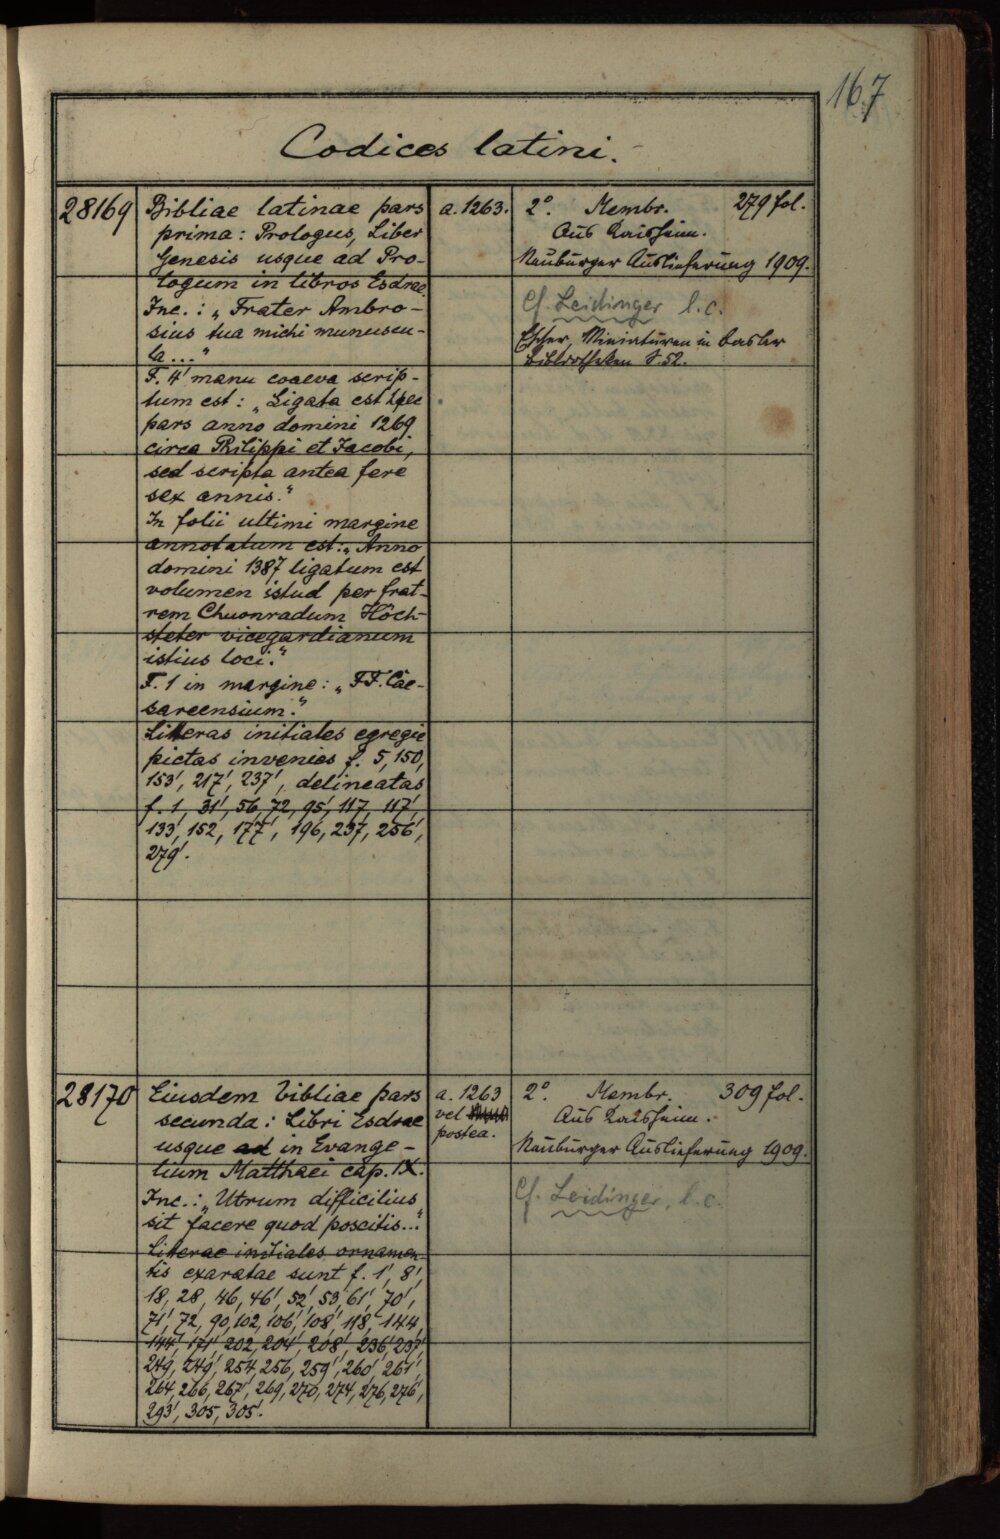 167
Codices latini.
28169
Bibliae latinae pars
prima: Prologus, Liber
Genesis usque ad Pro-
logum in libros Esdrae.
Inc.: „Frater Ambro-
sius tua michi munuscu-
la..."
F. 4' manu coaeva scrip-
tum est: „Ligata est hec
pars anno domini 1269
circa Philippi et Jacobi,
sed scripta antea fere
sex annis."
In folii ultimi margine
annotatum est: „Anno
domini 1387 ligatum est
volumen istud per frat-
rem Chuonradum Höch-
steter vicegardianum
istius loci."
F. 1 in margine: „FF. Cae-
sareensium."
Litteras initiales egregie
pictas invenies f. 5, 150,
153', 217', 237', delineatas
f. 1, 31', 56, 72, 95', 117, 117',
133', 152, 177', 196, 237, 256',
279'.
a. 1263.
2°. Membr. 279 fol.
Aus Kaisheim.
Neuburger Auslieferung 1909.
Cf. Leidinger l.c.
Escher, Miniaturen in Basler
Bibliotheken S. 52.
28170
Eiusdem bibliae pars
secunda: Libri Esdrae
usque in Evange-
lium Matthaei cap. IX.
Inc.: „Utrum difficilius
sit facere quod poscitis..."
Literae initiales ornamen-
tis exaratae sunt f. 1', 8',
18, 28, 46, 46', 52', 53, 61', 70',
71', 72, 90, 102, 106', 108', 118, 144,
144', 171', 202, 204', 208', 236', 237',
249, 249', 254, 256, 259', 260', 261',
264, 266, 267', 269, 270, 274, 276, 276',
293', 305, 305'.
a. 1263
vel
postea.
2° Membr. 309 fol.
Aus Kaisheim.
Neuburger Auslieferung 1909.
Cf. Leidinger, l.c.